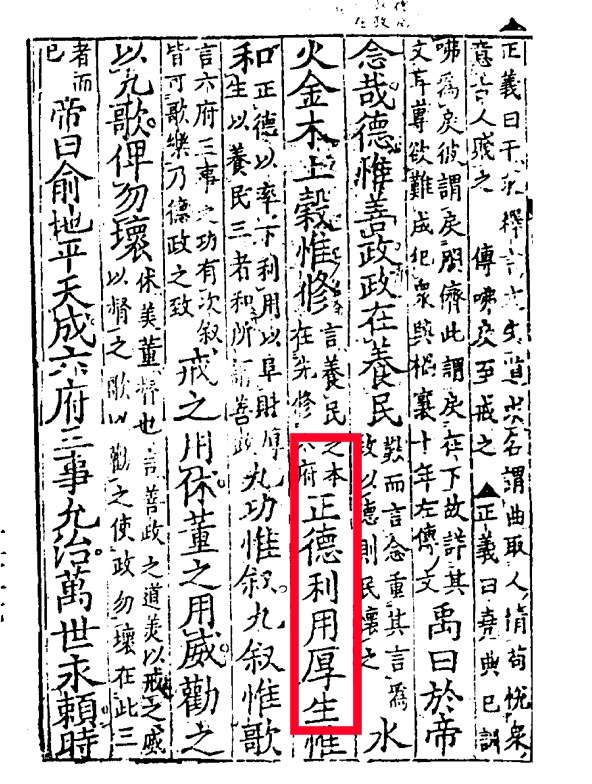 正義曰干求釋言文失道求名謂曲取人情苟悅衆
意古人賤之 傳咈戾至戒之 ▲正義曰堯典已訓
咈為戾彼謂戾朋儕此謂戾在下故詳其
文耳專欲難成犯衆興禍襄十年左傳文
禹曰於帝
念哉德惟善政政在養民
歎而言念重其言為
政以德則民懷之
水
火金木土穀惟修
言養民之本
在先修六府
正德利用厚生惟
和
正德以率下利用以阜財厚
生以養民三者和所謂善政
九功惟叙九叙惟歌
言六府三事之功有次叙
皆可歌樂乃德政之致
戒之用休董之用威勸之
以九歌俾勿壞
休美董督也言善政之道美以戒之威
以督之歌以勸之使政勿壞在此三
者而
已
帝曰俞地平天成六府三事允治萬世永賴時